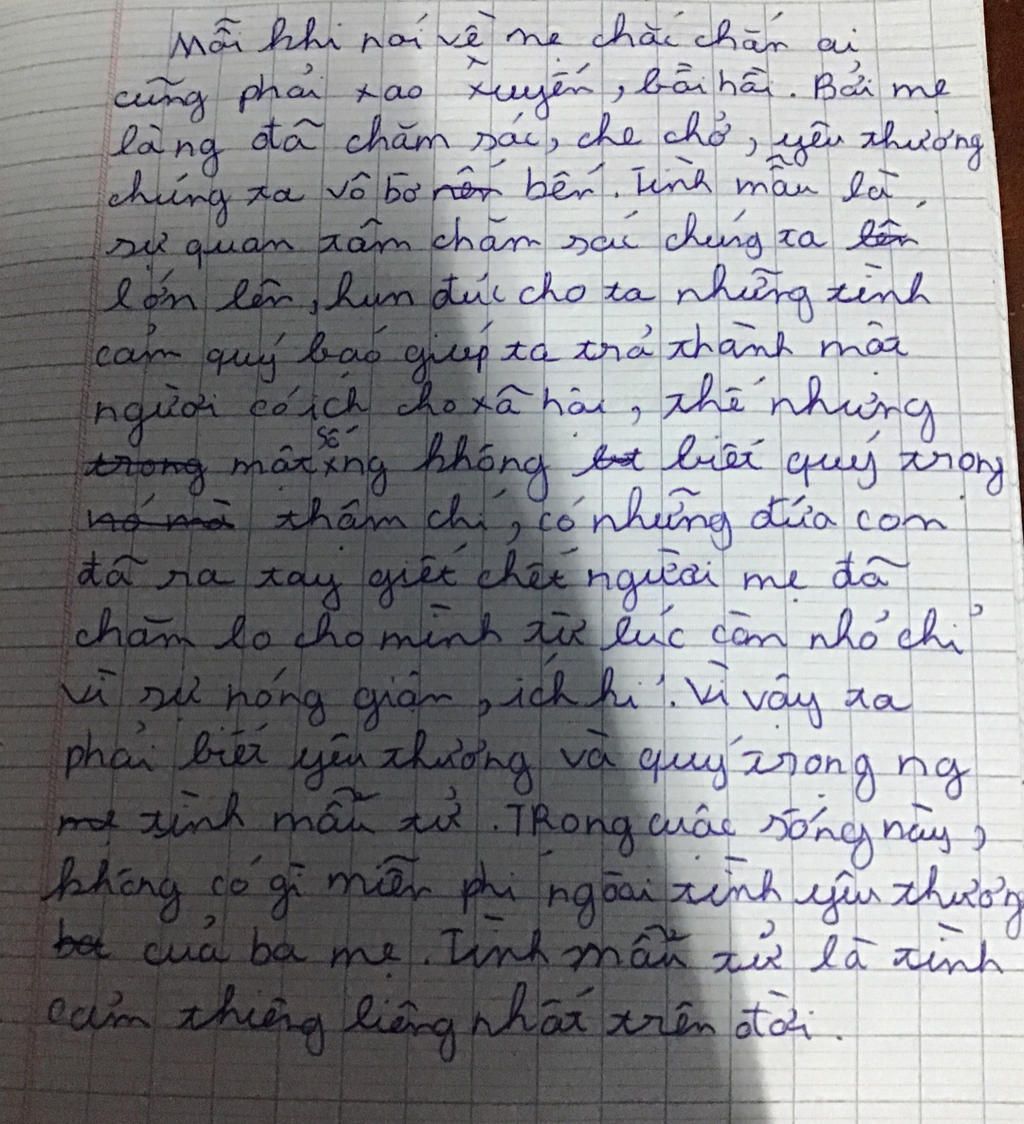 Mỗi khi nói về mẹ chắc chắn ai
cũng phải xao xuyến, bồi hồi. Bởi mẹ
là ng đã chăm sóc, che chở, yêu thương
chúng ta vô bờ bến. Tình mẫu là
sự quan tâm chăm sóc chúng ta
lớn lên, hun đúc cho ta những tình
cảm quý báo giúp ta trở thành một
người có ích cho xã hội, thế nhưng
một số ng không biết quý trọng
thậm chí, có những đứa con
đã ra tay giết chết người mẹ đã
chăm lo cho mình từ lúc còn nhỏ chỉ
vì sự nóng giận, ích kỉ. Vì vậy ta
phải biết yêu thương và quý trọng ng
tình mẫu tử. TRong cuộc sống này,
không có gì miễn phí ngoài tình yêu thương
của ba mẹ. Tình mẫu tử là tình
cảm thiêng liêng nhất trên đời.